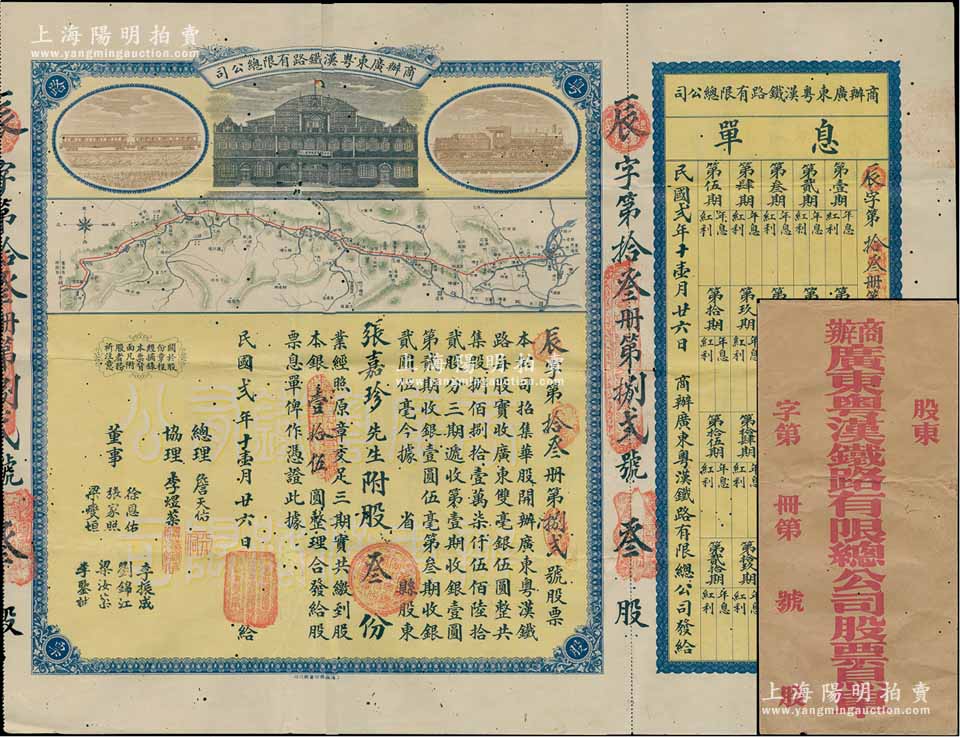 上海陽明拍賣
www.yangmingauction.com
商辦廣東粵漢鐵路有限總公司
辰字第拾叁册第捌弍號股票
本公司招集華股開辦廣東粵漢鐵
路每股實收廣東雙毫銀伍圓整共
集股捌佰捌拾壹萬柒仟伍佰陸拾
貳股分三期遞收第壹期收銀壹圓
第貳期收銀壹圓伍毫第叁期收銀
貳圓伍毫今據 省 縣股東
張嘉珍先生附股叁份
業經照原章交足三期實共繳到股
本銀壹拾伍圓整理合發給股
票息單俾作憑證此據
民國弍年十壹月廿六日給
總理 詹天佑
協理 李煜棻
董事
徐恩佑
張家照
梁燮垣
李振成
劉錦江
梁汝
李鑒
關於股
份章程
經摘錄
本票背
面凡附
股者務
祈注意
辰字第拾叁册第捌弍號 叁股
商辦廣東粵漢鐵路有限總公司
息單
辰字第拾叁册第
第壹期 年息 紅利
第貳期 年息 紅利
第叁期 年息 紅利
第肆期 年息 紅利
第伍期 年息 紅利
第玖期
第拾期 紅利
第拾肆期 年息 紅利
第拾伍期 年息 紅利
第拾玖期 年息 紅利
第貳拾期 年息 紅利
民國弍年十壹月廿六日 商辦廣東粵漢鐵路有限總公司發給
股東
商辦廣東粵漢鐵路有限總公司股票息單
字第 册第 號 股
上海陽明拍賣
www.yangmingauction.com
上海陽明拍賣
www.yangmingauction.com